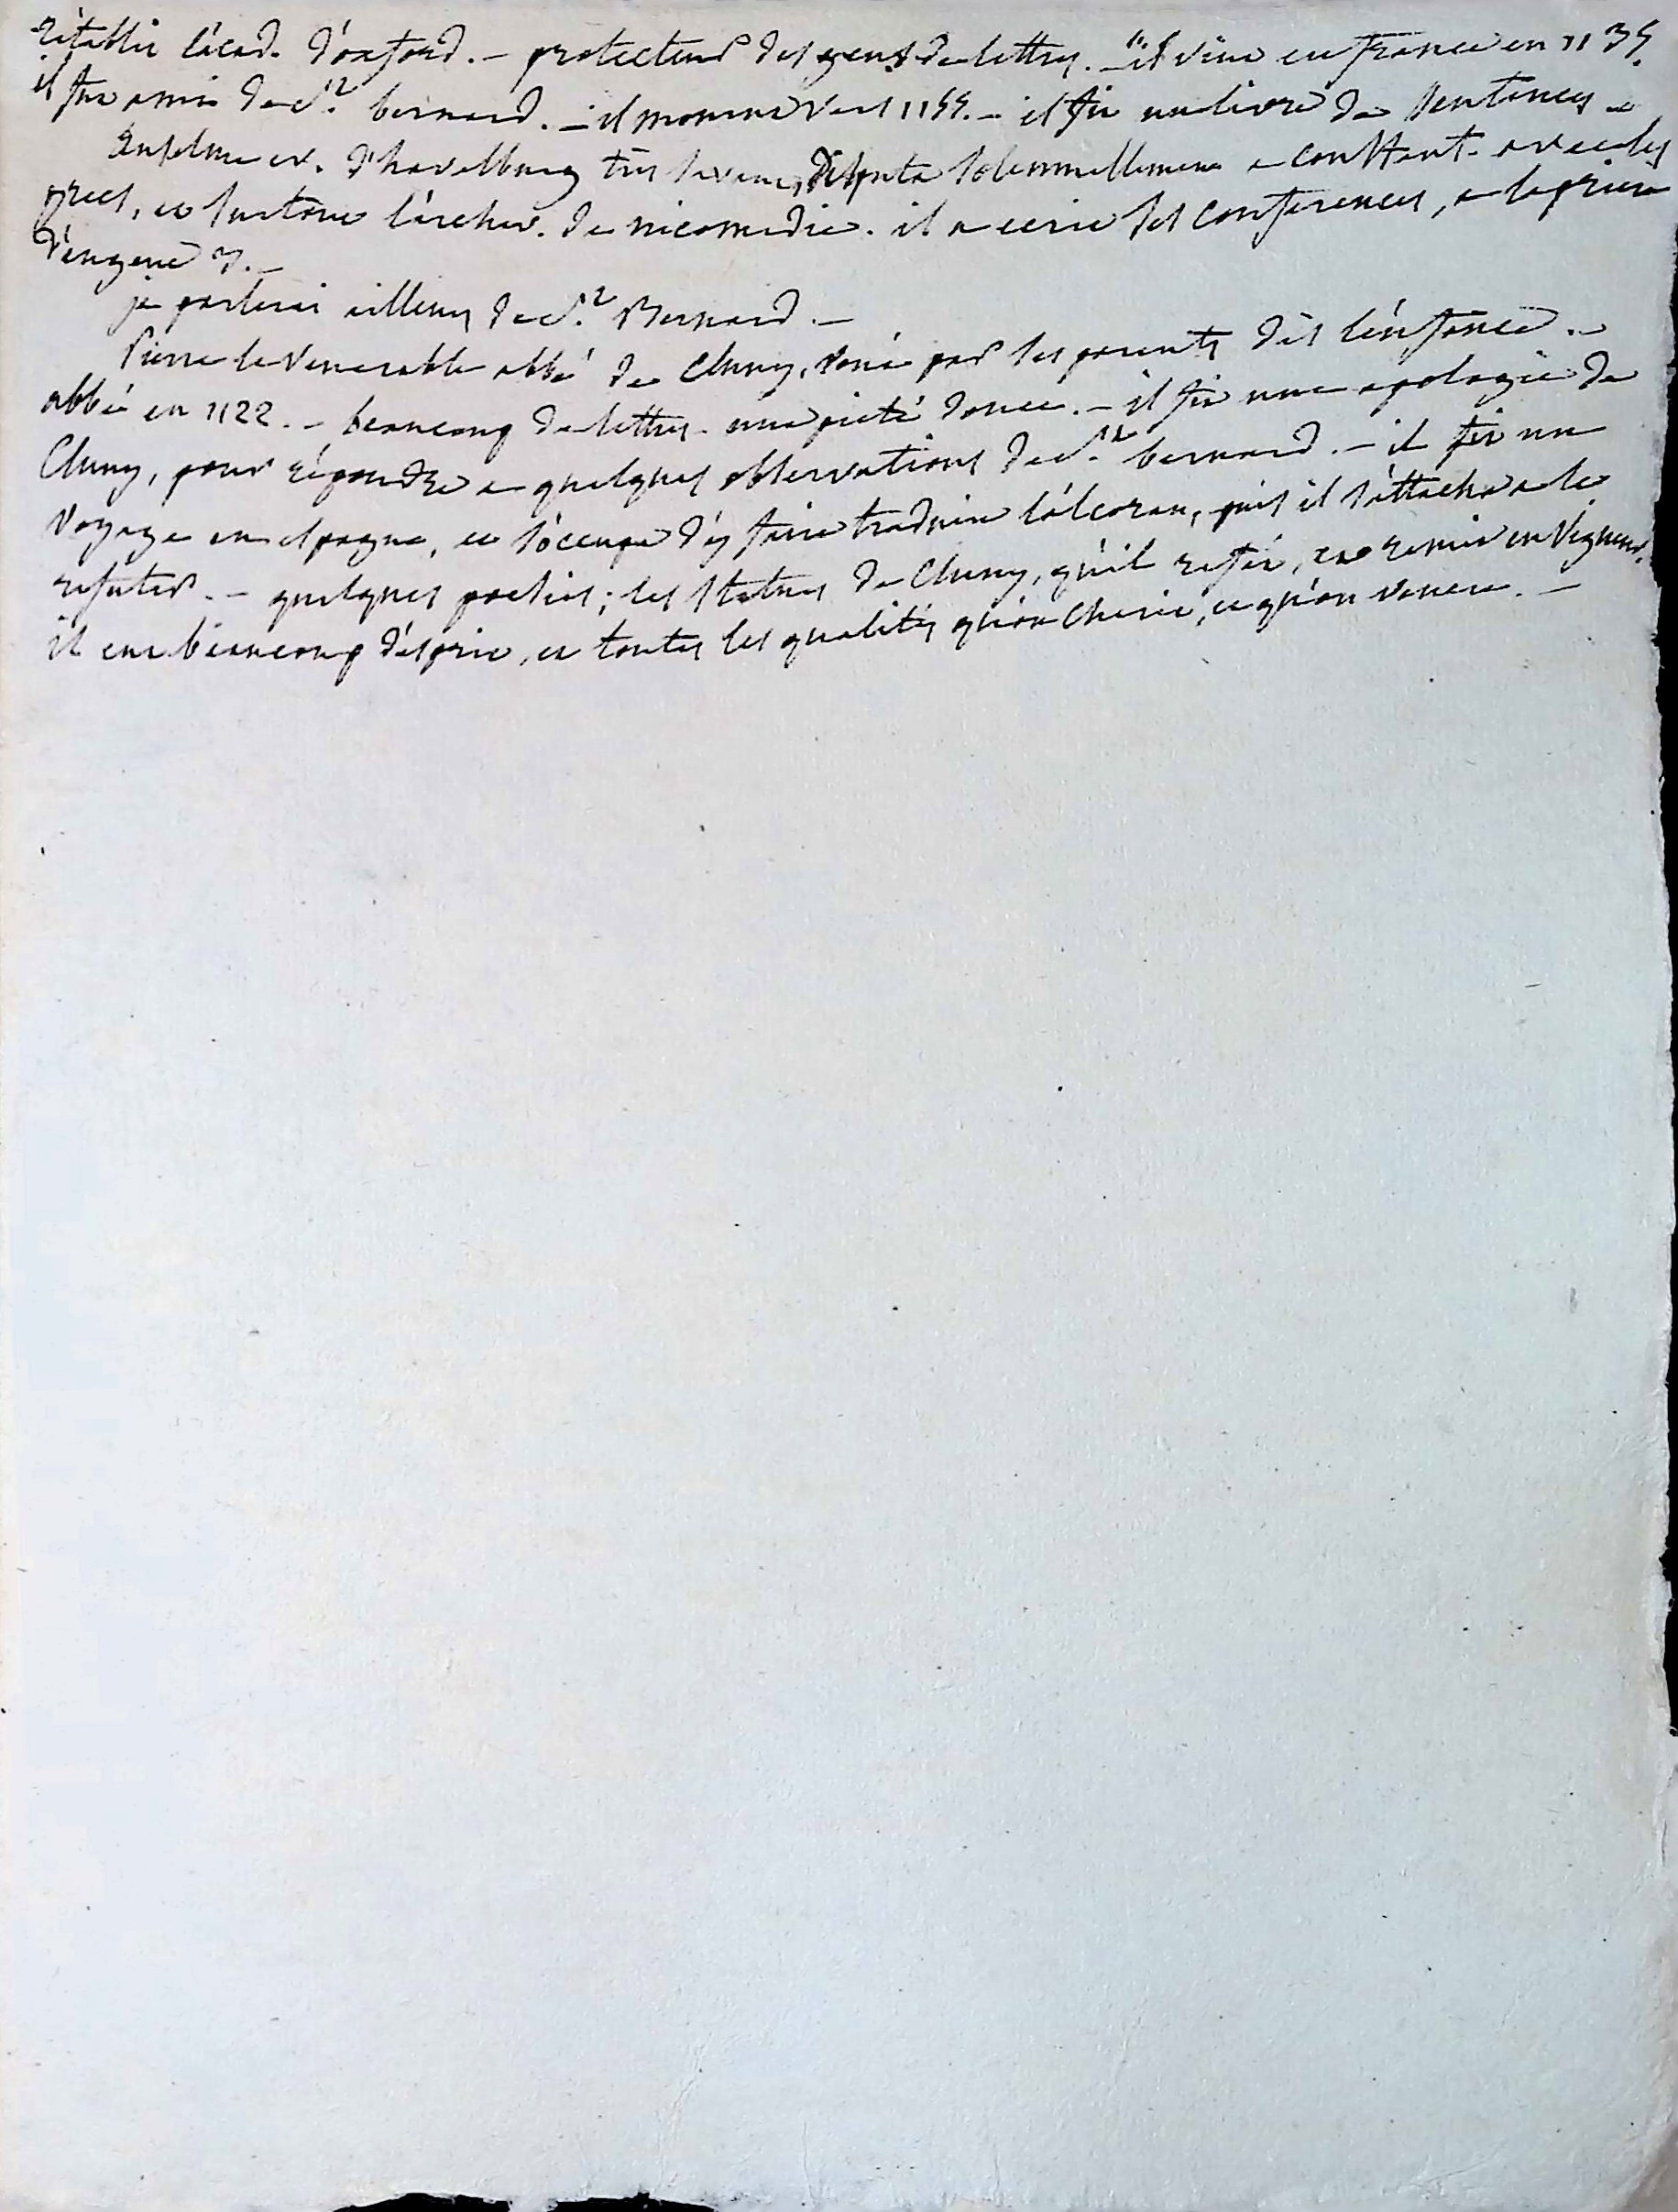 rétablir l'acad. d'oxford. – protecteur des gens de lettres. – il vint en france en 1135.
il fut ami de St. bernard. – il mourut vers 1155. – il fit un livre de sentences –
anselme ev. d'havelburg très savant, disputa solemnellement a constant. avec les
grecs, et surtout l'archev. de nicomedie. il a ecrit ses conferences, a la priere
d'eugene 3. –
je parlerai ailleurs de St. Bernard. –
Pierre le Venerable abbé de Cluny, voué par ses parents dès l'enfance. –
abbé en 1122. – beaucoup de lettres – une pieté douce. – il fit une apologie de
Cluny, pour répondre a quelques observations de St. bernard. – il fit un
Voyage en espagne, et s'occupa d'y faire traduire l'alcoran, puis il s'attacha a le
refuter. – quelques poesies; les statuts de Cluny, qu'il refit, et remit en vigueur.
il eut beaucoup d'esprit, et toutes les qualités qu'on cherit, et qu'on venere. –